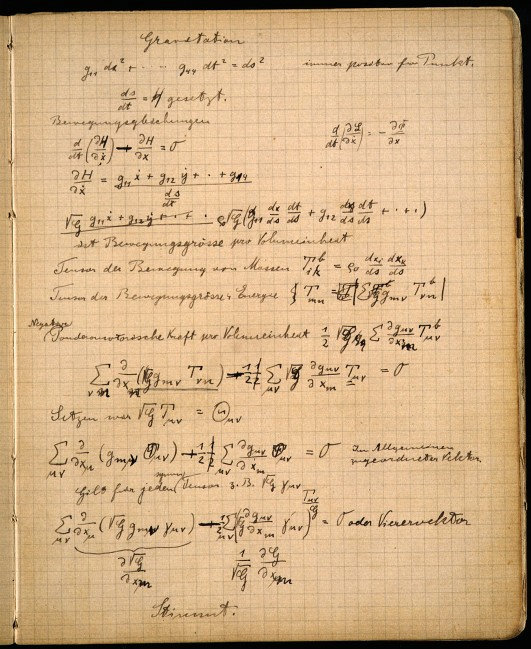 Gravitation
g₁₁ dx² + ⋯ g₄₄ dt² = ds² immer positiv für Punkt.
ds/dt = H gesetzt.
Bewegungsgleichungen
d/dt(∂H/∂ẋ) − ∂H/∂x = 0 d/dt(∂L/∂ẋ) = − ∂Φ/∂x
∂H/∂ẋ = (g₁₁ ẋ + g₁₂ ẏ + ⋅ + g₁₄)/(ds/dt)
√G g₁₁ẋ + g₁₂ẏ + ⋅ + ⋅ ρ₀√G (g₁₁ dx/ds dt/ds + g₁₂ dy/ds dt/ds + ⋅ + ⋅)
ist Bewegungsgrösse pro Volumeinheit
Tensor der Bewegung von Massen T^b_ik = ρ₀ dx_i/ds dx_k/ds
Tensor der Bewegungsgrösse u. Energie T_mn = √G Σ g_mν T^b_νn
Negative Ponderomotorische Kraft pro Volumeinheit 1/2 √G Σ ∂g_μν/∂x_m T^b_μν
Σ_νn ∂/∂x_n (√G g_mν T_νn) − 1/2 Σ_μν √G ∂g_μν/∂x_m T_μν = 0
Setzen wir √G T_μν = Θ_μν
Σ_μν ∂/∂x_μ (g_mν Θ_μν) − 1/2 Σ_μν ∂g_μν/∂x_m Θ_μν = 0 Im Allgemeinen Vektor.
Gilt für jeden symm. Tensor z. B. √G γ_μν
T_μν/G
Σ_μν ∂/∂x_μ (√G g_mν γ_μν) − 1/2 Σ_μν √G ∂g_μν/∂x_m γ_μν = 0 oder Vierervektor
∂√G/∂x_m 1/√G ∂G/∂x_m
Stimmt.